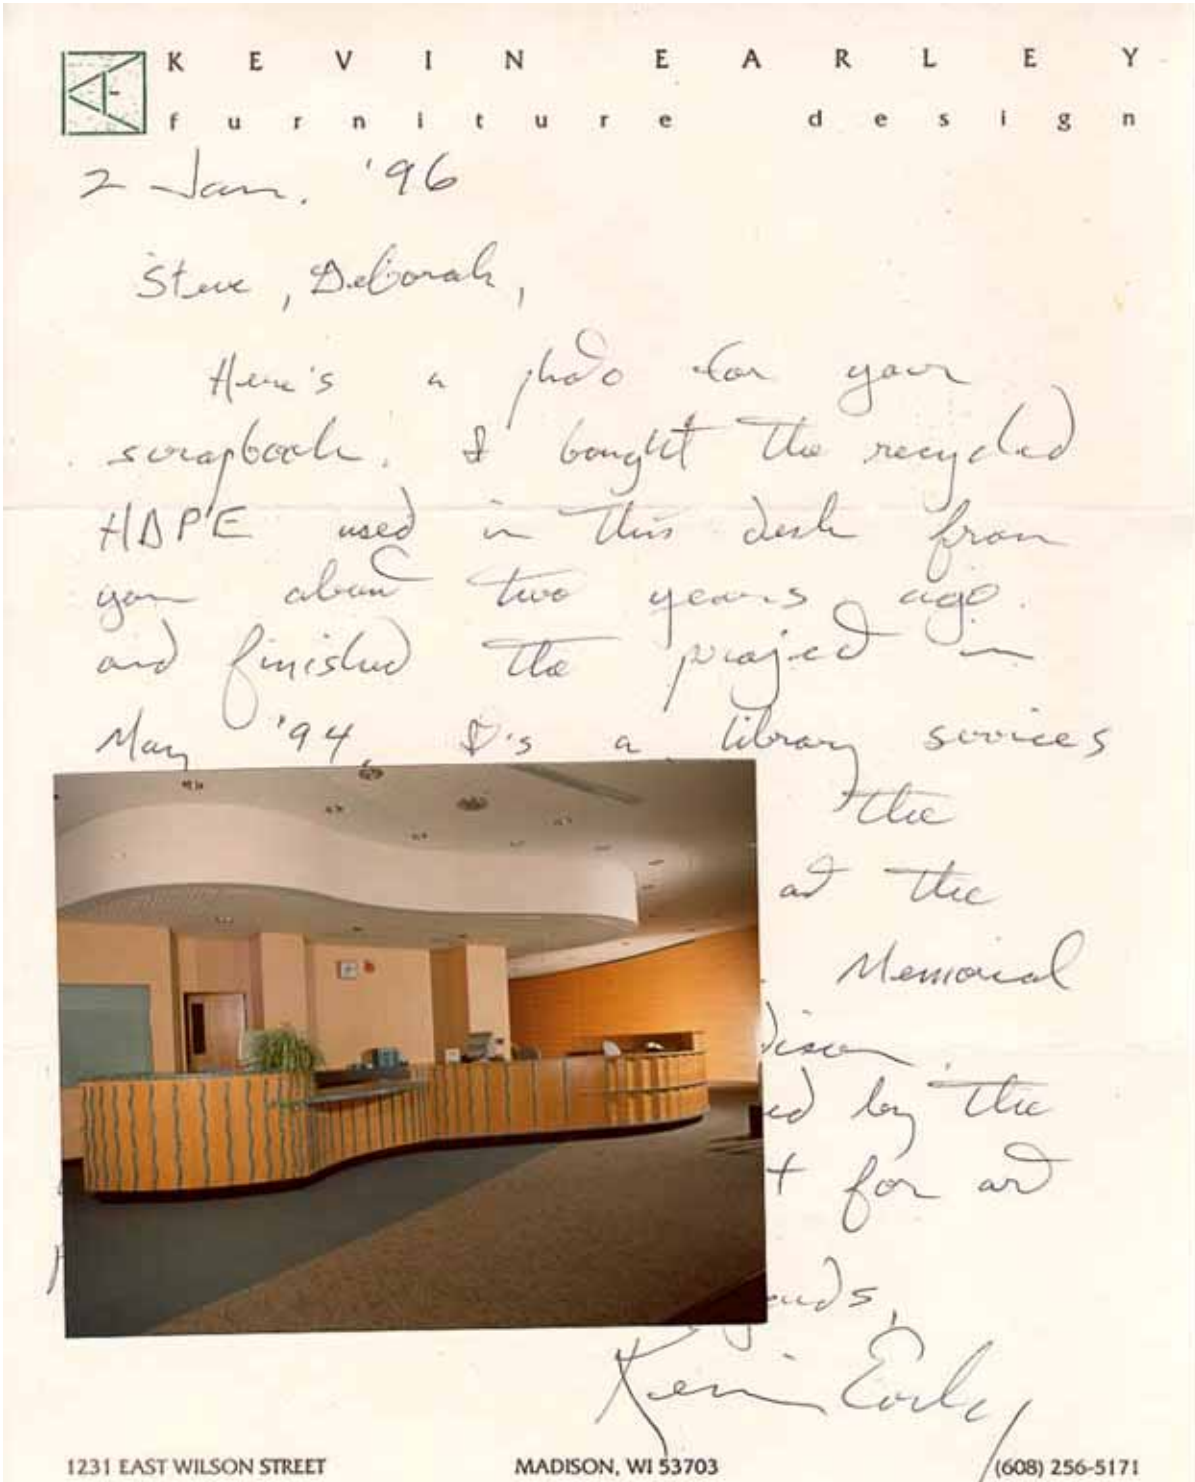 KEVIN EARLEY
furniture design
2 Jan. '96
Steve, Deborah,
Here's a photo for your
scrapbook. I bought the recycled
HDPE used in this desk from
you about two years ago.
and finished the project in
May '94. It's a library services
the
at the
Memorial
ed by the
t for art
Kevin Earley
1231 EAST WILSON STREET MADISON, WI 53703 (608) 256-5171